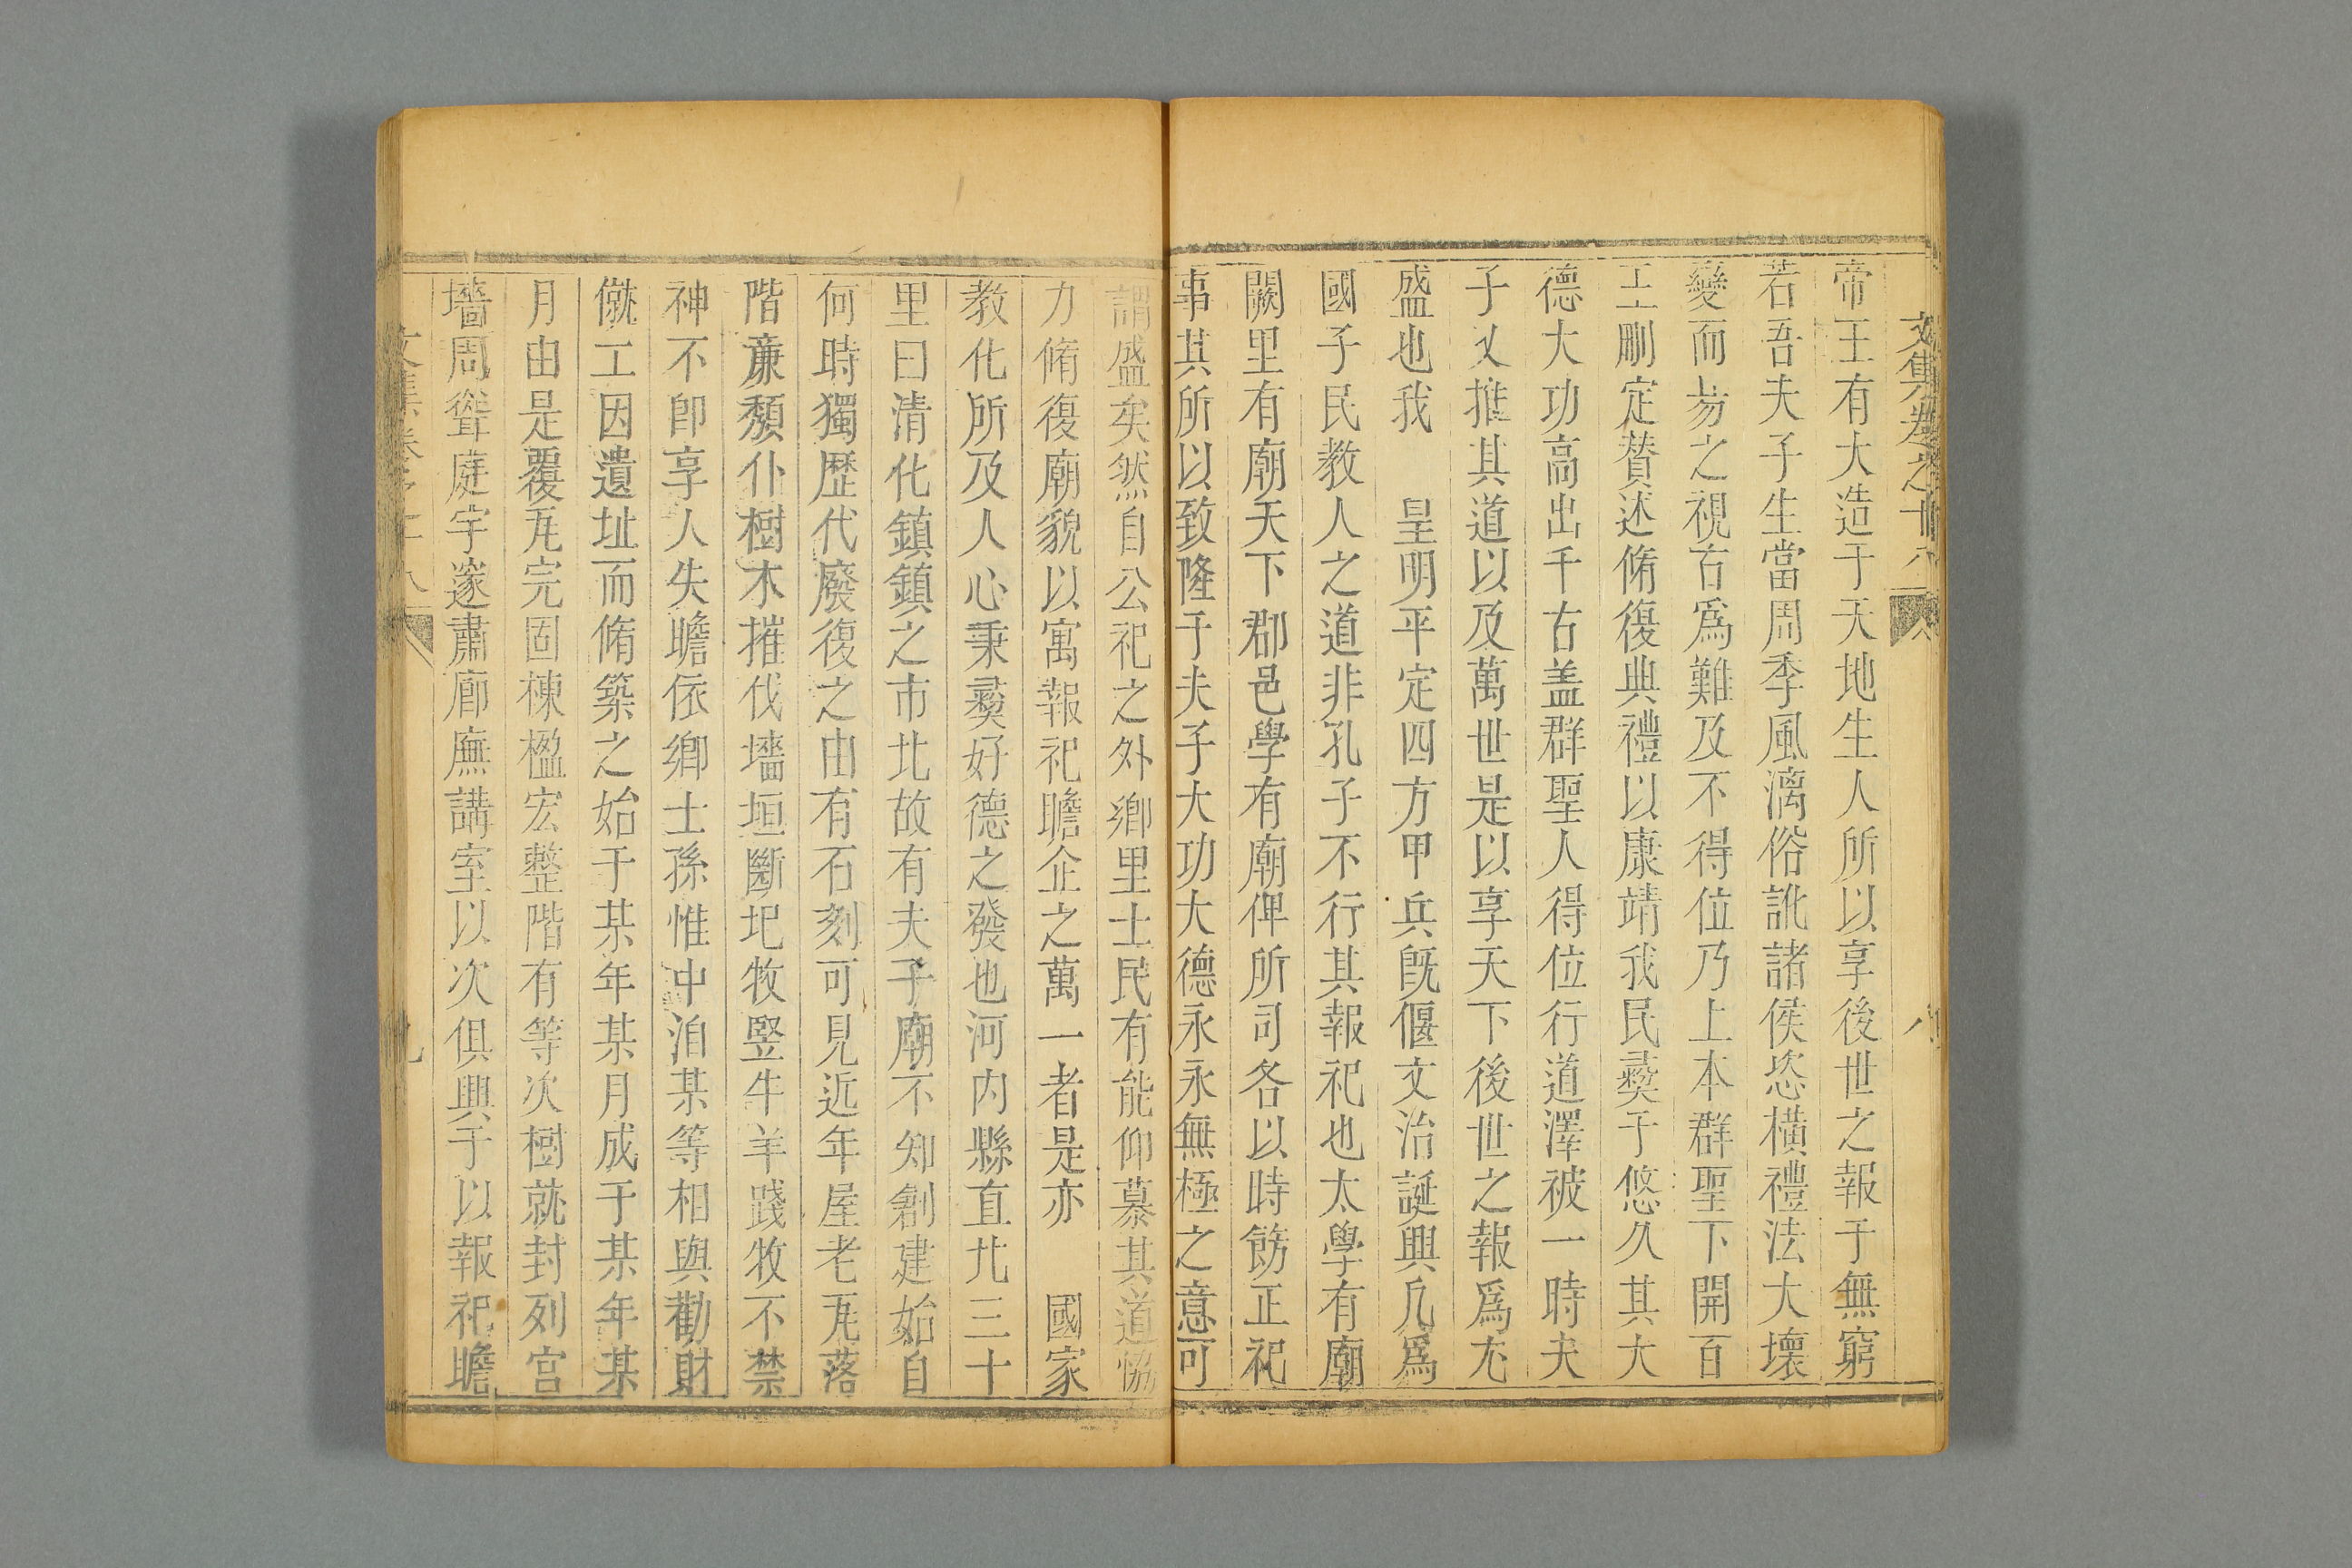 文集卷之十八
八
帝王有大造于天地生人所以享後世之報于無窮
若吾夫子生當周季風漓俗訛諸侯恣橫禮法大壞
變而易之視古爲難及不得位乃上本群聖下開百
王刪定賛述脩復典禮以康靖我民彞于悠久其大
德大功高出千古盖群聖人得位行道澤被一時夫
子乂推其道以及萬世是以享天下後世之報爲尢
盛也我　皇明平定四方甲兵旣偃文治誕興凢爲
國子民教人之道非孔子不行其報祀也太學有廟
闕里有廟天下郡邑學有廟俾所司各以時餝正祀
事其所以致隆于夫子大功大德永永無極之意可
謂盛矣然自公祀之外鄉里士民有能仰慕其道恊
力脩復廟貌以寓報祀瞻企之萬一者是亦　國家
教化所及人心秉彞好德之發也河内縣直北三十
里曰清化鎮鎮之市北故有夫子廟不知創建始自
何時獨歷代廢復之由有石刻可見近年屋老瓦落
階亷頽仆樹木摧伐墻垣斷圯牧竪牛羊踐牧不禁
神不卽享人失瞻依鄉士孫惟中洎某等相與勸財
僦工因遺址而脩築之始于某年某月成于某年某
月由是覆瓦完固棟楹宏整階有等次樹就封列宫
墻周聳庭宇邃肅廊廡講室以次俱興于以報祀瞻
文集卷之十八
九